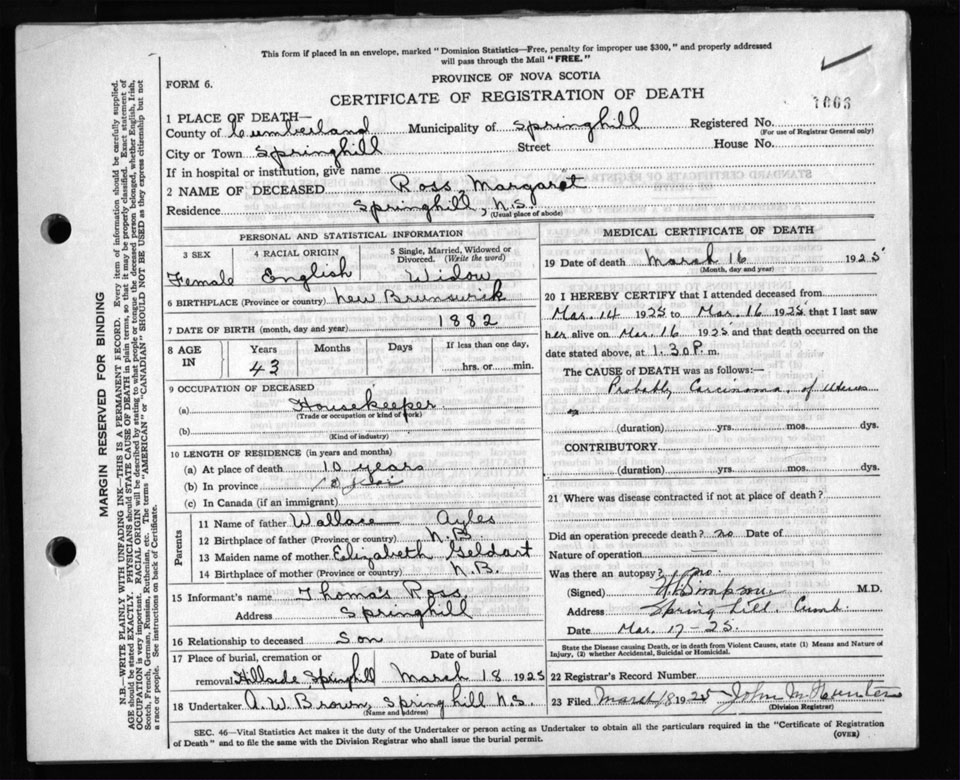 This form if placed in an envelope, marked "Dominion Statistics—Free, penalty for improper use $300," and properly addressed
will pass through the Mail "FREE."
PROVINCE OF NOVA SCOTIA
FORM 6.
CERTIFICATE OF REGISTRATION OF DEATH
1 PLACE OF DEATH—
County of Cumberland Municipality of Springhill Registered No.
(For use of Registrar General only)
City or Town Springhill Street House No.
If in hospital or institution, give name
2 NAME OF DECEASED Ross, Margaret
Residence Springhill, N.S.
(Usual place of abode)
PERSONAL AND STATISTICAL INFORMATION
3 SEX 4 RACIAL ORIGIN 5 Single, Married, Widowed or Divorced. (Write the word)
Female English Widow
6 BIRTHPLACE (Province or country) New Brunswick
7 DATE OF BIRTH (month, day and year) 1882
8 AGE IN Years Months Days If less than one day,
43 hrs. or min.
9 OCCUPATION OF DECEASED
(a) Housekeeper
(Trade or occupation or kind of work)
(b)
(Kind of industry)
10 LENGTH OF RESIDENCE (in years and months)
(a) At place of death 10 years
(b) In province
(c) In Canada (if an immigrant)
Parents
11 Name of father Wallace Ayles
12 Birthplace of father (Province or country) N.B.
13 Maiden name of mother Elizabeth Geldart
14 Birthplace of mother (Province or country) N.B.
15 Informant's name Thomas Ross
Address Springhill
16 Relationship to deceased Son
17 Place of burial, cremation or Date of burial
removal Hillside, Springhill March 18 1925
18 Undertaker A. W. Brown, Springhill N.S.
(Name and address)
MEDICAL CERTIFICATE OF DEATH
19 Date of death March 16 1925
(Month, day and year)
20 I HEREBY CERTIFY that I attended deceased from
Mar. 14 1925 to Mar. 16 1925 that I last saw
her alive on Mar. 16 1925 and that death occurred on
date stated above, at 1.30 P. m.
The CAUSE of DEATH was as follows:—
Probably Carcinoma, of Uterus
(duration) yrs. mos. dys.
CONTRIBUTORY
(duration) yrs. mos. dys.
21 Where was disease contracted if not at place of death?
Did an operation precede death? no Date of
Nature of operation —
Was there an autopsy? no.
(Signed) Simpson M.D.
Address Springhill. Cumb.
Date Mar. 17-25.
State the Disease causing Death, or in death from Violent Causes, state (1) Means and Nature of
Injury, (2) whether Accidental, Suicidal or Homicidal.
22 Registrar's Record Number
23 Filed March 18 1925 John M.
(Division Registrar)
SEC. 46—Vital Statistics Act makes it the duty of the Undertaker or person acting as Undertaker to obtain all the particulars required in the "Certificate of Registration
of Death" and to file the same with the Division Registrar who shall issue the burial permit.
(OVER)
MARGIN RESERVED FOR BINDING
N.B.—WRITE PLAINLY WITH UNFADING INK—THIS IS A PERMANENT RECORD. Every item of information should be carefully supplied.
AGE should be stated EXACTLY. PHYSICIANS should STATE CAUSE OF DEATH in plain terms, so that it may be properly classified. Exact statement of
OCCUPATION is very important. RACIAL ORIGIN will be described by stating to what people or tongue the deceased person belonged, whether English, Irish,
Scotch, French, German, Russian, Ruthenian, etc. The terms "AMERICAN" or "CANADIAN" SHOULD NOT BE USED as they express citizenship but not
a race or people. See instructions on back of Certificate.